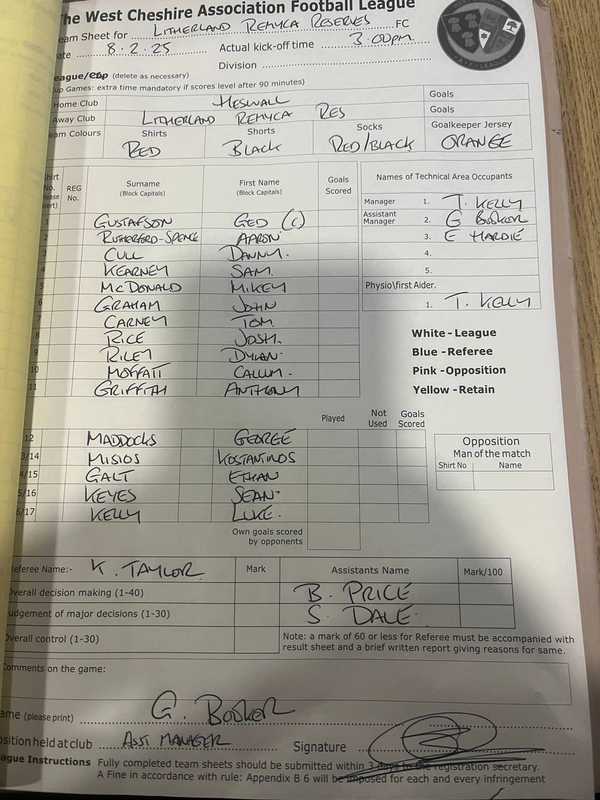 The West Cheshire Association Football League
Team Sheet for LITHERLAND REMYCA RESERVES FC
Date 8.2.25 Actual kick-off time 3.00pm
Division
League/cup (delete as necessary)
Cup Games: extra time mandatory if scores level after 90 minutes)
Home Club HESWALL Goals
Away Club LITHERLAND REMYCA RES Goals
Team Colours Shirts Shorts Socks Goalkeeper Jersey
RED BLACK RED/BLACK ORANGE
Shirt No. REG No. Surname (Block Capitals) First Name (Block Capitals) Goals Scored Names of Technical Area Occupants
Manager 1. T. KELLY
Assistant Manager 2. G BOOKER
3. E HARDIE
4.
5.
Physio\first Aider.
1. T. KELLY
1 GUSTAFSON GED (C)
2 RUTHERFORD-SPENCE AARON
3 CULL DANNY.
4 KEARNEY SAM.
5 MCDONALD MIKEY
6 GRAHAM JOHN
CARNEY TOM
8 RICE JOSH.
9 RILEY DYLAN.
10 MOFFATT CALLUM.
11 GRIFFITH ANTHONY
White - League
Blue - Referee
Pink - Opposition
Yellow - Retain
Played Not Used Goals Scored
12 MADDOCKS GEORGE
3/14 MISIOS KOSTANTINOS
4/15 GALT ETHAN
5/16 KEYES SEAN.
6/17 KELLY LUKE.
Own goals scored by opponents
Opposition
Man of the match
Shirt No Name
Referee Name:- K. TAYLOR Mark Assistants Name Mark/100
Overall decision making (1-40) B. PRICE
Judgement of major decisions (1-30) S. DALE.
Overall control (1-30) Note: a mark of 60 or less for Referee must be accompanied with
result sheet and a brief written report giving reasons for same.
Comments on the game:
Name (please print) G. BOOKER
Position held at club ASST MANAGER Signature
League Instructions Fully completed team sheets should be submitted within 3 days to the registration secretary.
A Fine in accordance with rule: Appendix B 6 will be imposed for each and every infringement